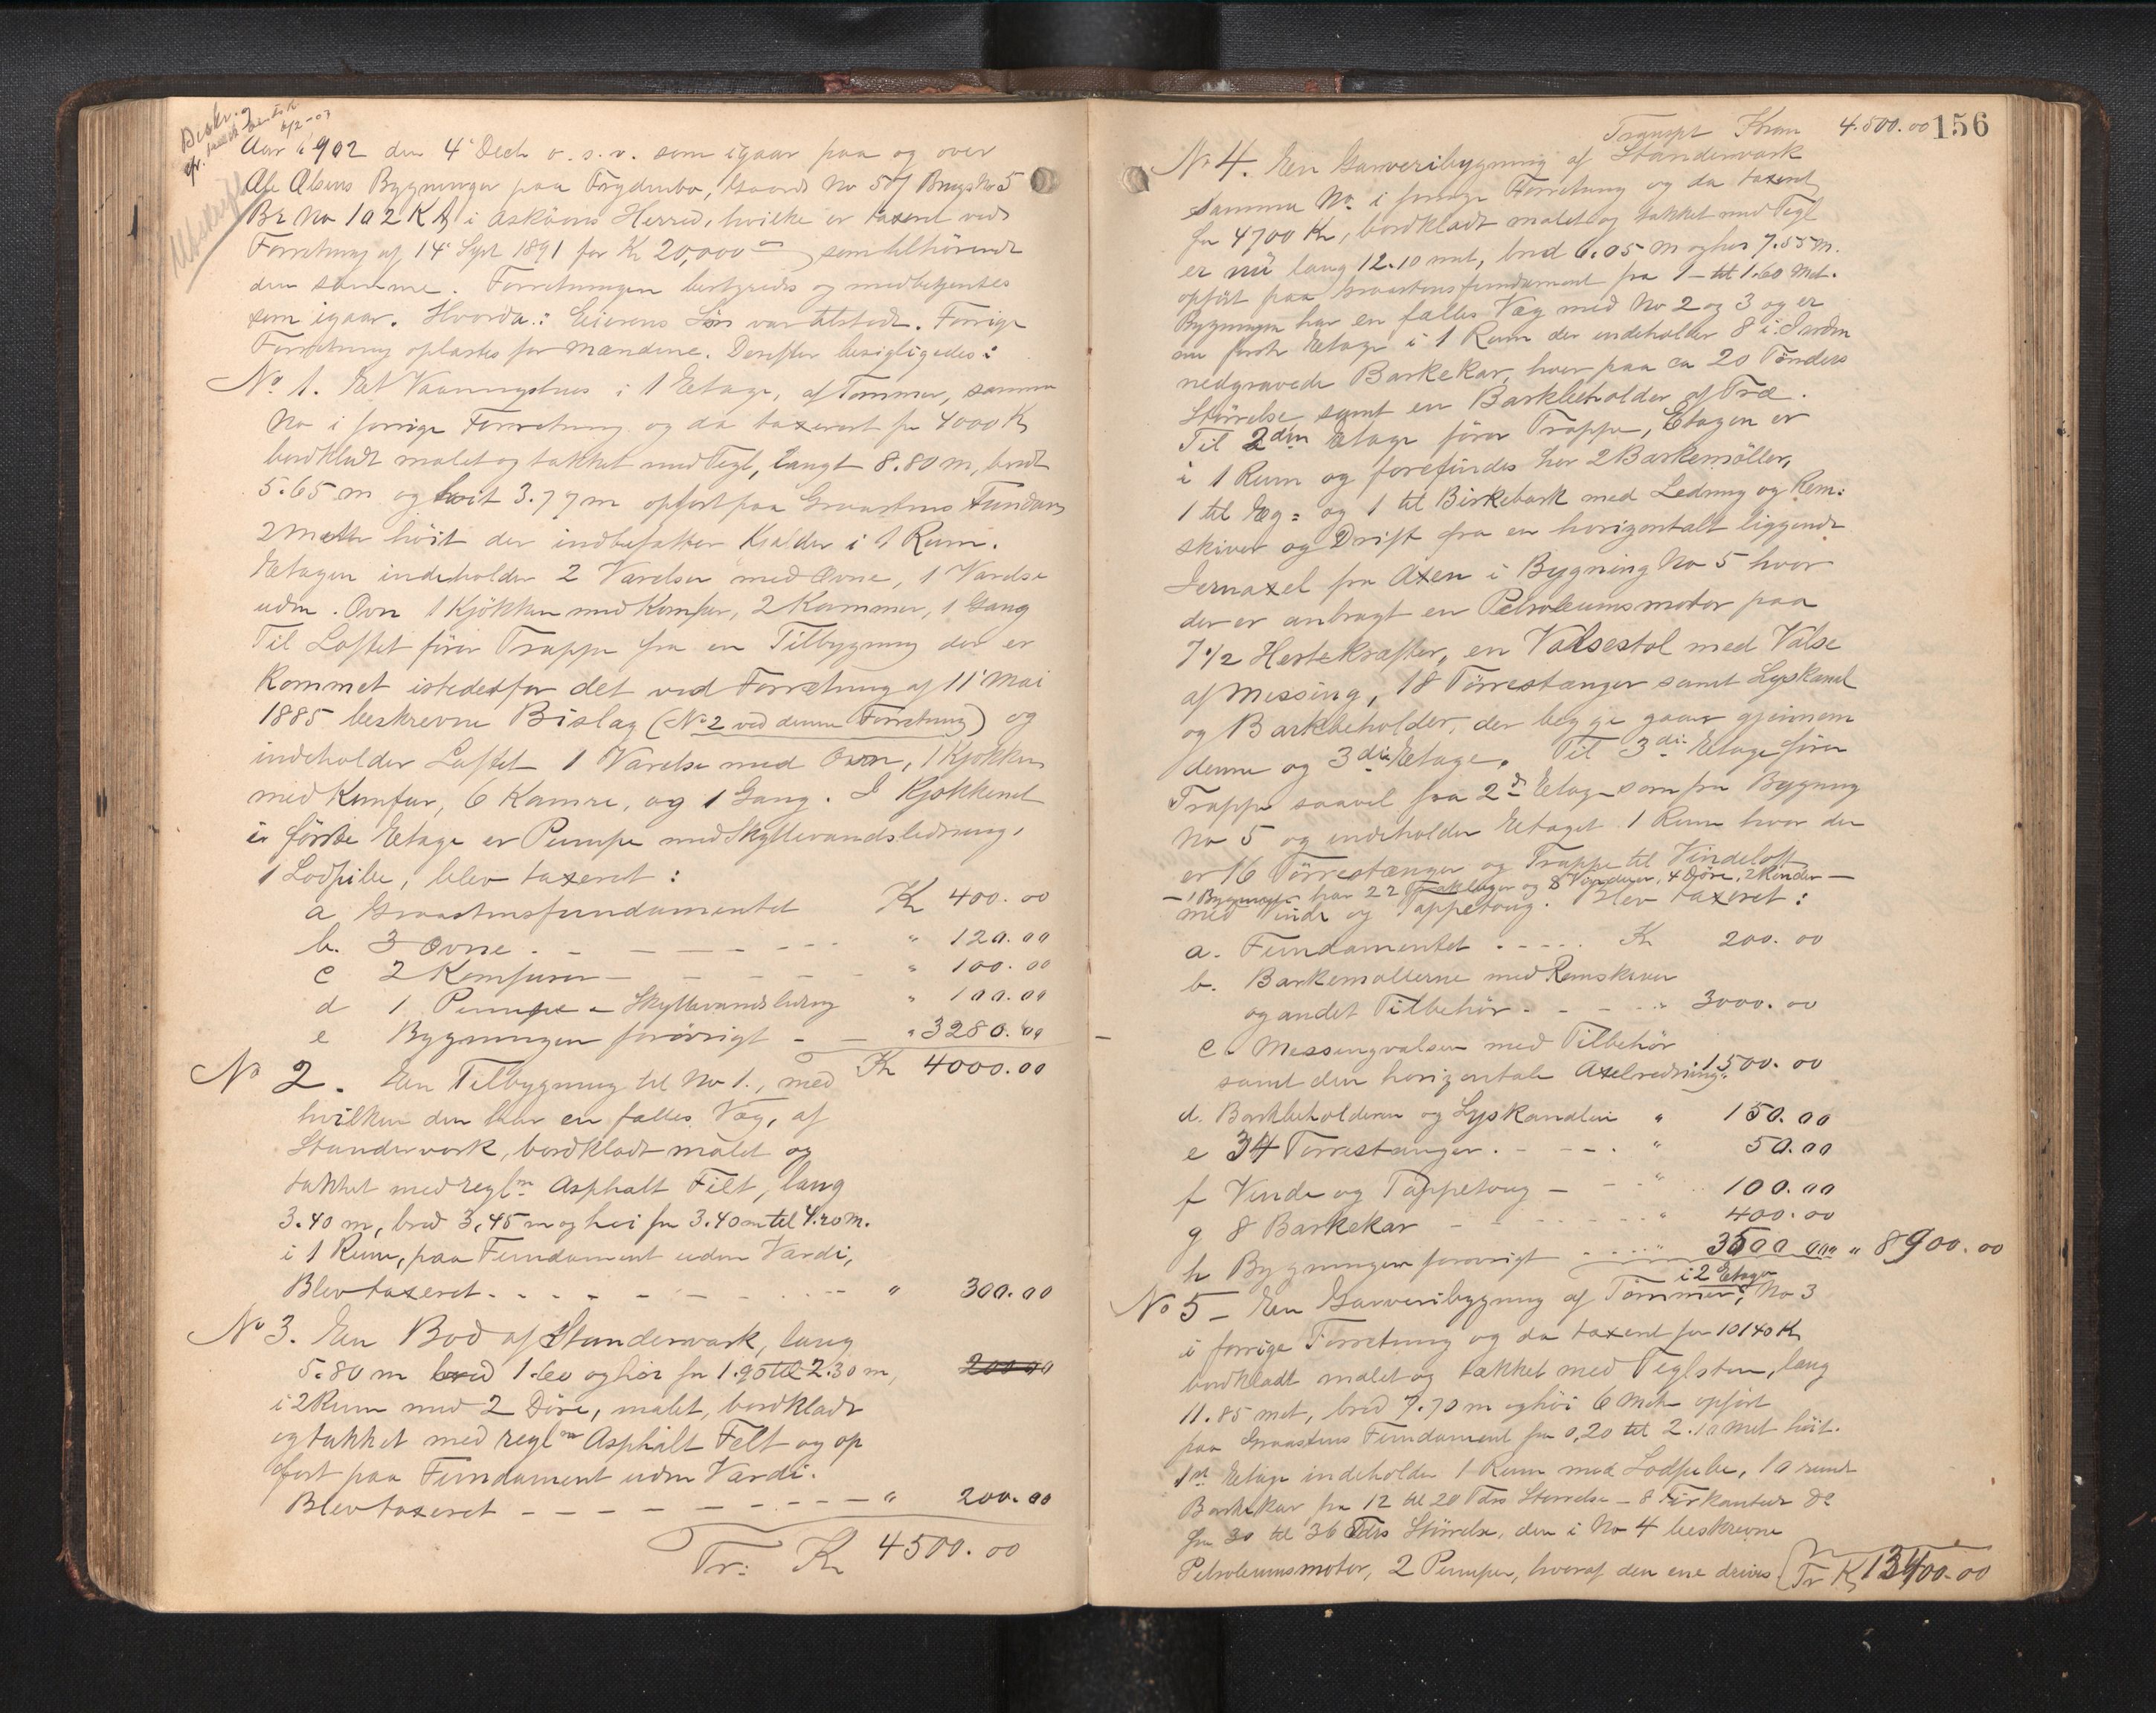 Aar 1902 den 4' Decb o. s. v. som igaar paa og over
Ole Olsens Bygninger paa Frydenbo, Gaards No 5 Brugs No 5
Br No 102 Kb i Askøens Herred, hvilke er taxeret ved
Forretning af 14' Sept 1891 for Kr 20,000 som tilhørende
den samme. Forretningen bestyredes og medbetjentes
som igaar. Hvorda: Eierens Søn var tilstede. Forrige
Forretning oplæstes for Mændene. Derefter besigtigedes:
No 1. Et Vaaningshus i 1 Etage, af Tømmer, samme
No i forrige Forretning og da taxeret for 4000 Kr
bordklædt malet og tækket med Tegl, langt 8.80 m, bredt
5.65 m og høit 3.77 m opført paa Graastens Fundam
2 Meter høit der indbefatter Kjælder i 1 Rum.
Etagen indeholder 2 Værelser med Ovne, 1 Værelse
uden Ovn 1 Kjøkken med Komfur, 2 Kammer, 1 Gang
Til Loftet fører Trappe fra en Tilbygning der er
kommet istedetfor det ved Forretning af 11' Mai
1885 beskrevne Bislag (No 2 ved denne Forretning) og
indeholder Loftet 1 Værelse med Ovn, 1 Kjøkken
med Komfur, 6 Kamre, og 1 Gang. I Kjøkkenet
i første Etage er Pumpe med Skyllevandsledning,
1 Lodpibe, blev taxeret:
a Graastensfundamentet Kr 400.00
b. 3 Ovne - - - - " 120.00
c 2 Komfurer - - - - " 100.00
d 1 Pumpe - Skyllevandsledning " 100.00
e Bygningen forøvrigt - - " 3280.00
Kr 4000.00
No 2. En Tilbygning til No 1., med
hvilken den har en fælles Væg, af
Stenderværk, bordklædt malet og
tækket med regl Asphalt Filt, lang
3.40 m, bred 3,45 m og høi fra 3.40 m til 4.20 m.
i 1 Rum, paa Fundament uden Værdi,
Blev taxeret - - - - " 300.00
No 3. En Bod af Stenderværk, lang
5.80 m bred 1.60 og høi fra 1.90 til 2.30 m, 200.00
i 2 Rum med 2 Døre, malet, bordklædt
og tækket med regl Asphalt Felt og op
ført paa Fundament uden Værdi.
Blev taxeret - - - - " 200.00
Tr: Kr 4500.00
156
Transpt Kron 4.500.00
No 4. En Garveribygning af Stenderværk
samme No i forrige Forretning og da taxeret
for 4700 Kr, bordklædt malet og tækket med Tegl
er nu lang 12.10 met, bred 6.05 m og høi 7.55 m.
opført paa Graastensfundament fra 1 - til 1.60 Met.
Bygningen har en fælles Væg med No 2 og 3 og er
nu første Etage i 1 Rum der indeholder 8 i Jorden
nedgravede Barkekar, hver paa ca 20 Tønders
Størrelse samt en Barkbeholder af Træ.
Til 2den Etage fører Trappe, Etagen er
i 1 Rum og forefindes her 2 Barkemøller,
1 til Eg= og 1 til Birkebark med Ledning og Rem:
skiver og Drift fra en horizontalt liggende
Jernaxel fra Axen i Bygning No 5 hvor
der er anbragt en Petroleumsmotor paa
7 1/2 Hestekræfter, en Valsestol med Valse
af Messing, 18 Tørrestænger samt Lyskanal
og Barkbeholder, der begge gaar gjennem
denne og 3die Etage. Til 3die Etage fører
Trappe saavel fra 2d Etage som fra Bygning
No 5 og indeholder Etaget 1 Rum hvor der
er 16 Tørrestænger og Trappe til Vindeloft
- Bygningen har 22 og 8 Vinduer, 4 Døre, 2 Render -
med Vinde og Tappetoug. Blev taxeret:
a. Fundamentet - - - - Kr 200.00
b. Barkemøllerne med Remskiver
og andet Tilbehør - - - " 3000.00
c. Messingvalsen med Tilbehør
samt den horizontale Axelredning " 1500.00
d. Barkbeholderen og Lyskanalen " 150.00
e 34 Tørrestænger - - - " 50.00
f Vinde og Tappetoug - - - " 100.00
g 8 Barkekar - - - - " 400.00
h Bygningen forøvrigt - - - " 3500 00 " 8900.00
i 2 Etager
No 5 - En Garveribygning af Tømmer, No 3
i forrige Forretning og da taxeret for 10140 Kr
bordklædt malet og tækket med Teglsten, lang
11.85 met, bred 7.70 m og høi 6 Meter opført
paa Graastens Fundament fra 0,20 til 2.10 Met høit.
1st Etage indeholder 1 Rum med Lodpibe, 10 runde
Barkekar fra 12 til 20 Tdrs Størrelse - 8 Firkantede Do
fra 30 til 36 Tdrs Størrelse, den i No 4 beskrevne
Petroleumsmotor, 2 Pumper, hvoraf den ene drives Tr Kr 13400.00